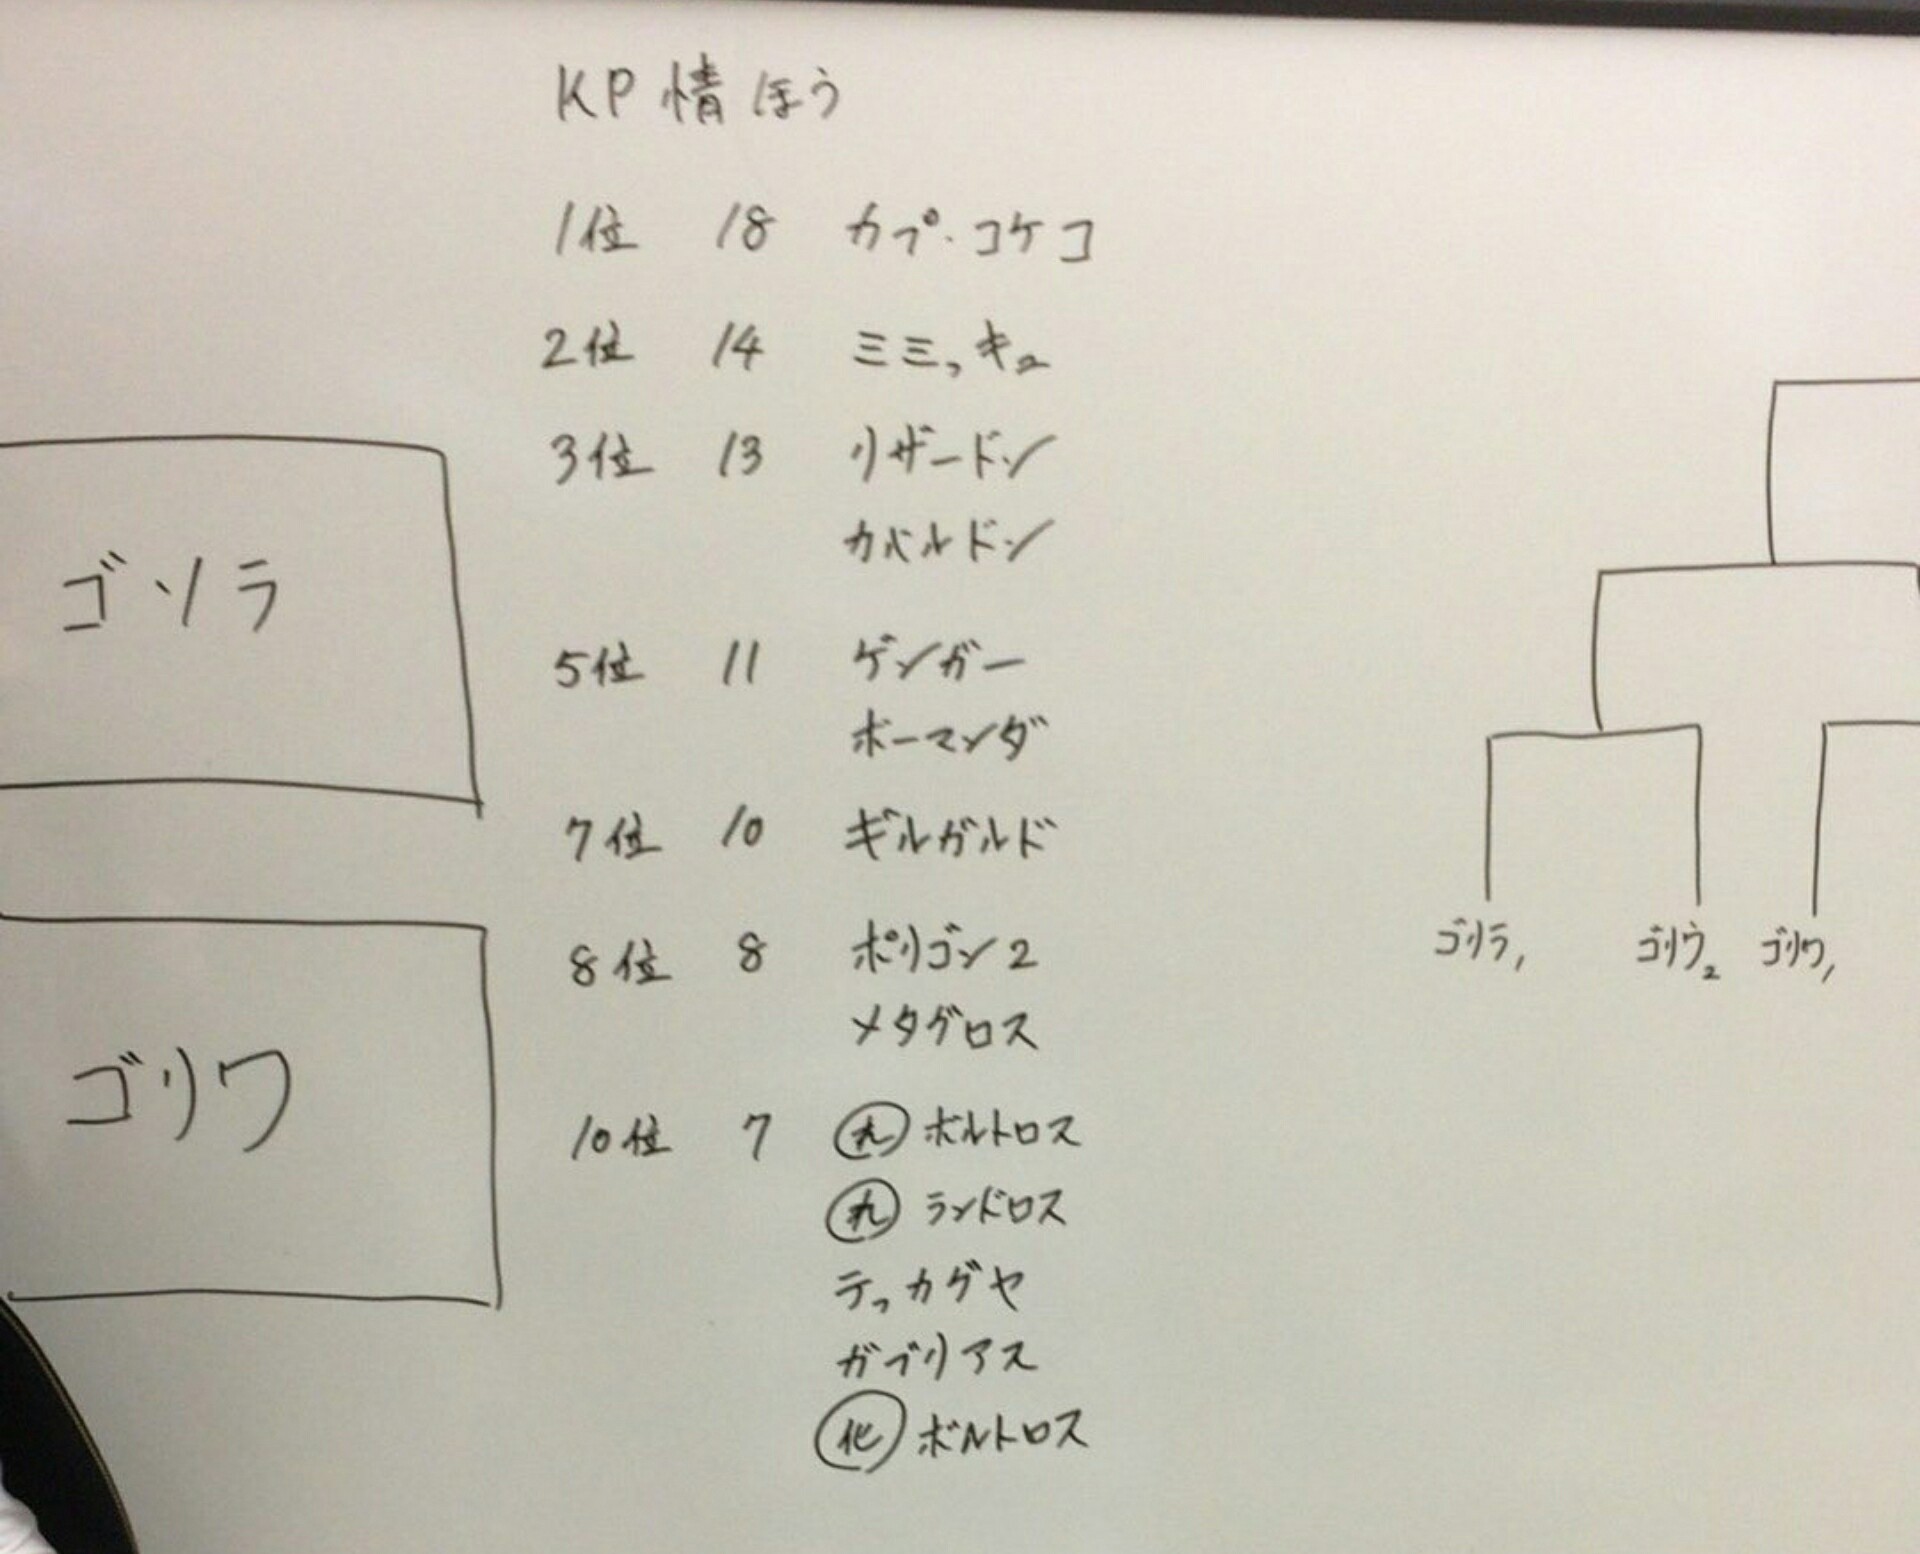 KP情ほう
1位 18 カプ・コケコ
2位 14 ミミッキュ
3位 13 リザードン
カバルドン
5位 11 ゲンガー
ボーマンダ
7位 10 ギルガルド
8位 8 ポリゴン2
メタグロス
10位 7 ㋹ボルトロス
ランドロス
テッカグヤ
ガブリアス
化 ボルトロス
ゴソラ
ゴリワ
ゴリラ1
ゴリウ2
ゴリワ1